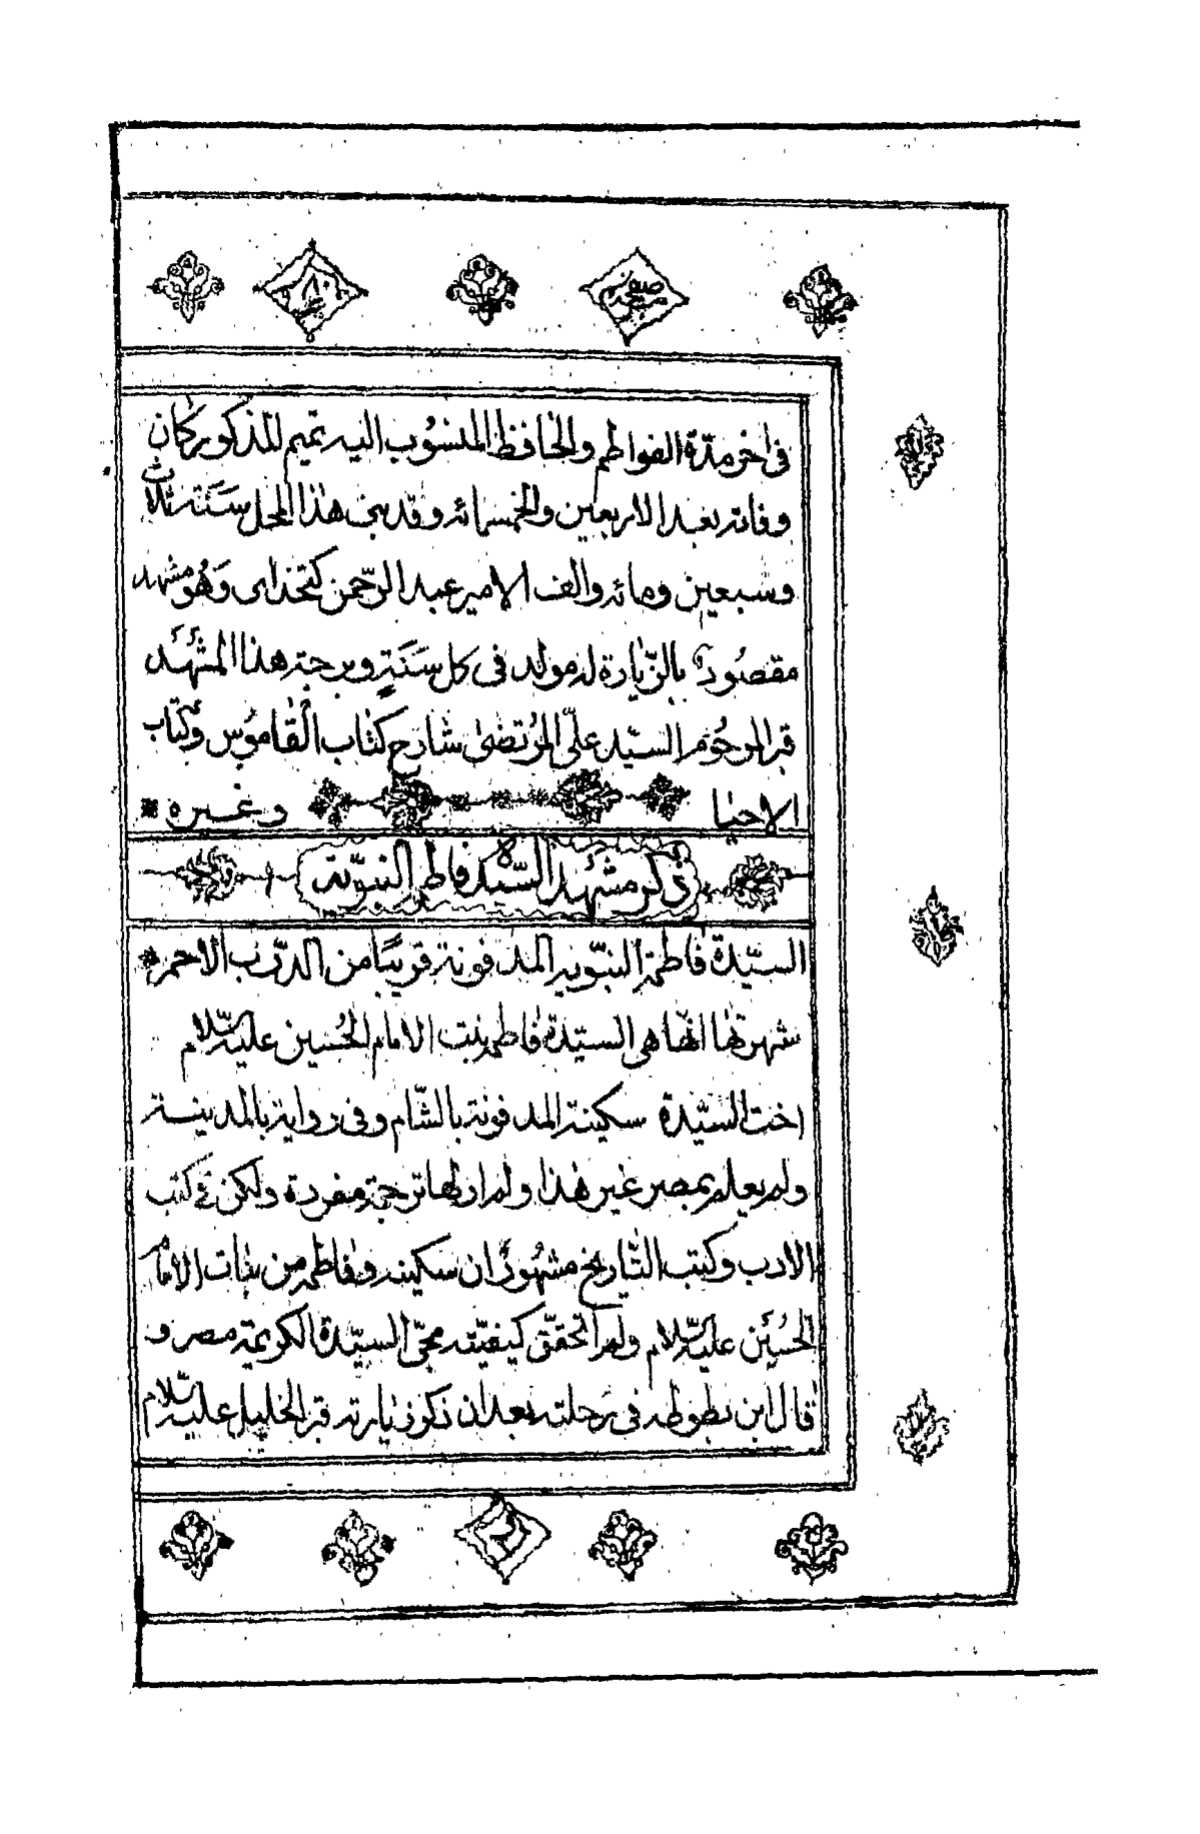 فى اخر مدّة الفواطم والحافظ المنسُوب اليه تميم المذكور كان
وفاته بعد الاربعين والخمسمائه وقد بنى هذا المحل سَنَة ثلاث
وسبعين ومائه والف الامير عبد الرّحمن كتخداى وَهُو مشهد
مقصُود بالزّيارة له مولد فى كل سَنَةٍ وبرجبة هذا المشْهَد
قبر المرحُوم السيّد علىّ المُرتضىٰ شارح كتاب القٰامُوس وكتاب
الاحيا وغيره
ذكر مشهد السّيدة فاطمة النبويّة
السيّدة فاطمة النبّويه المدفونة قريبًا من الدّرب الاحمر
شهرتها انّها هى السيّدة فاطمه بنت الامام الحُسين عليه السّلام
اخت السيّدة سكينة المدفونة بالشّام وفى رواية بالمدينة
ولم يعلم بمصر غير هذا ولم ار لها ترجمة مفردة ولكن فى كتب
الادب وكتب التّاريخ مشهُورٌ ان سكينه وفاطمه من بنات الامام
الحُسَين عليه السّلام ولم اتحقّق كيفيّة مجىّ السيّدة الكريمة مصر و
قال ابن بطوطه فى رحلته بعد ان ذكر زيارته قبر الخليل عليه السّلام